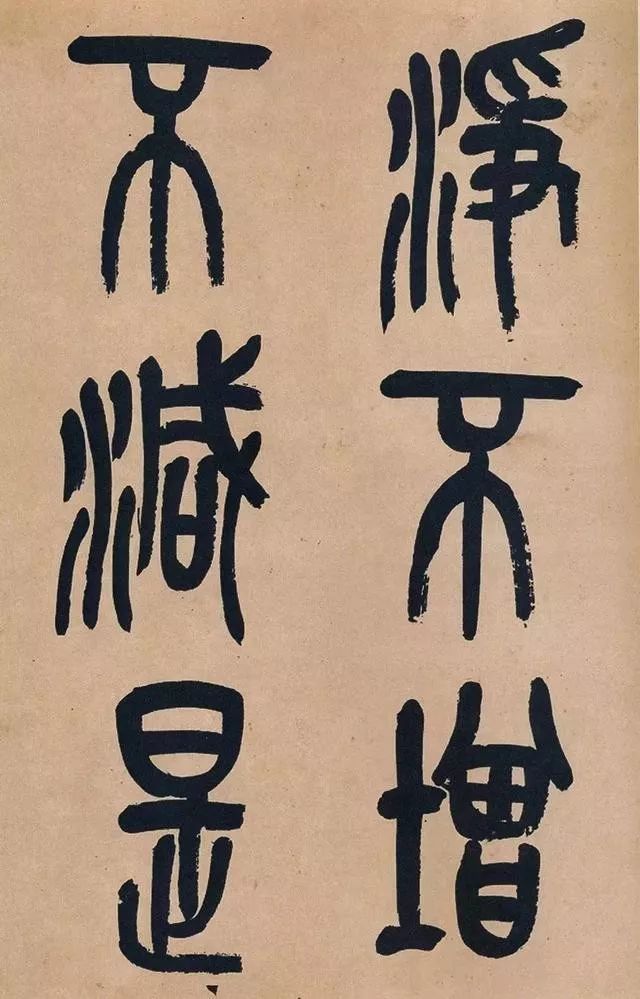 淨不增
不減是